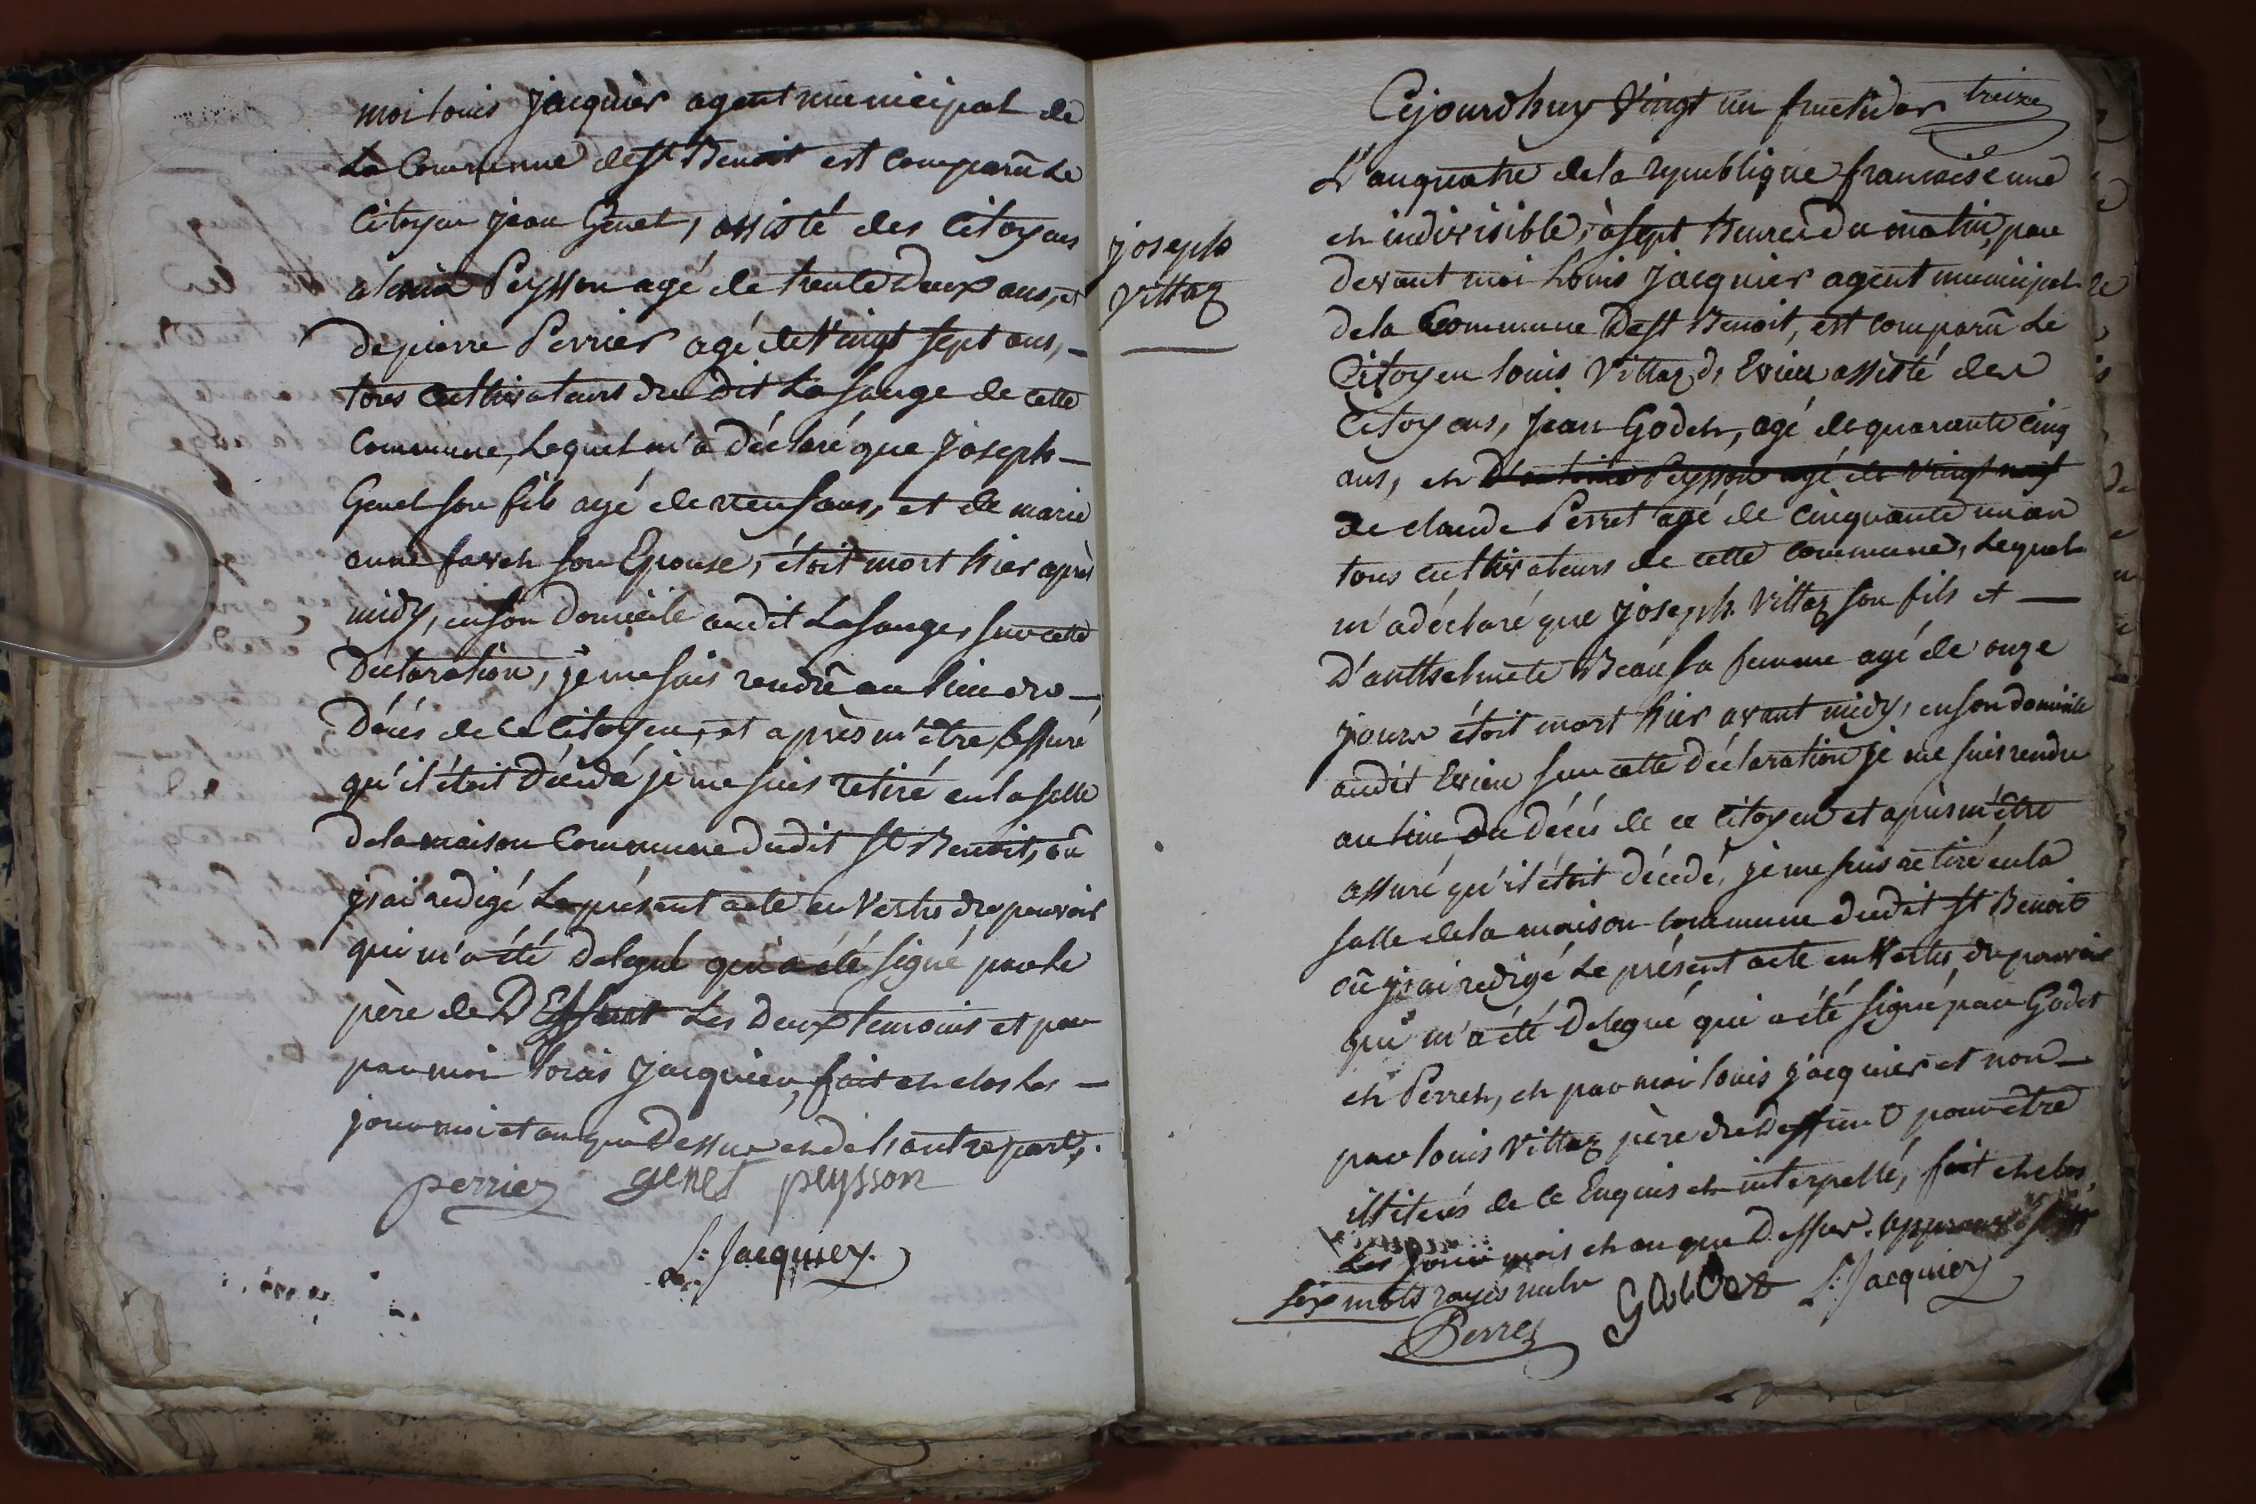 moi Louis jacquier agent municipal de
La Commune de St Benoit est comparû Le
Citoyen jean Genet, assisté des Citoyens
Peysson agé de trente Deux ans, et
de pierre Perrier agé de Vingt sept ans, –
tous Cultivateurs du dit La sauge de cette
Commune, Lequel m'a déclaré que joseph –
Genet son fils agé de neuf ans, et de marie
anne favet son Epouse, étoit mort hier après
midy, en son Domicile audit La sauge, sur cette
Déclaration, je me suis rendû au Lieu du –
Décès de ce Citoyen, et après m'être assuré
qu'il étoit Décédé je me suis retiré en la salle
de la maison Commune dudit St Benoit, où
j'ai redigé Le présent acte en Vertu du pouvoir
qui m'a été Delegué qui a été signé par le
père de Deffunt Les Deux temoins et par
par moi Louis Jacquier, fait et clos Les –
jour mois et an que Dessus et de l'autre part.
perrier genet peysson
L: Jacquier.
joseph
Vittaz
treize
Cejourdhuy Vingt un fructidor
L'an quatre de la republique francaise une
et indivisible, à sept heures du matin, par
devant moi Louis jacquier agent municipal
de la Commune De St Benoit, est comparû Le
Citoyen Louis Vittaz d'Evieu assisté des
Citoyens, jean Godet, agé de quarante cinq
ans, et D'antoine Peysson agé de Vingt neuf
de claude Perret agé de cinquante un an
tous cultivateurs de cette commune, Lequel
m'a déclaré que joseph Vittaz son fils et –
D'anthelmete Beau sa femme agé de onze
jours étoit mort hier avant midy, en son domicile
audit Evieu sur cette déclaration je me suis rendu
au Lieu Du décés de ce Citoyen et après m'être
assuré qu'il étoit décedé, je me suis retiré en la
salle de la maison commune dudit St Benoit
où j'ai redigé Le présent acte en Vertu du pouvoir
qui m'a été Delegué qui a été signé par Godet
et Perret, et par moi Louis jacquier et non –
par Louis Vittaz père du Deffunt pour être
illiterés de ce Enquis et interpellé, fait et clos
Les jour mois et an que Dessus. approuvé
six mots rayés nuls
Godet L: Jacquier
Perret